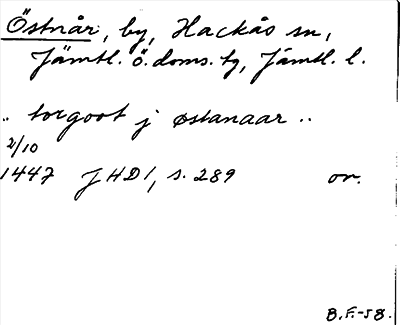 Östnår, by, Hackås sn,
Jämtl. ö. doms. tg, Jämtl. l.
.. torgoot j østanaar ..
2/10
1447 JHD 1, s. 289 or.
B.F.-58.